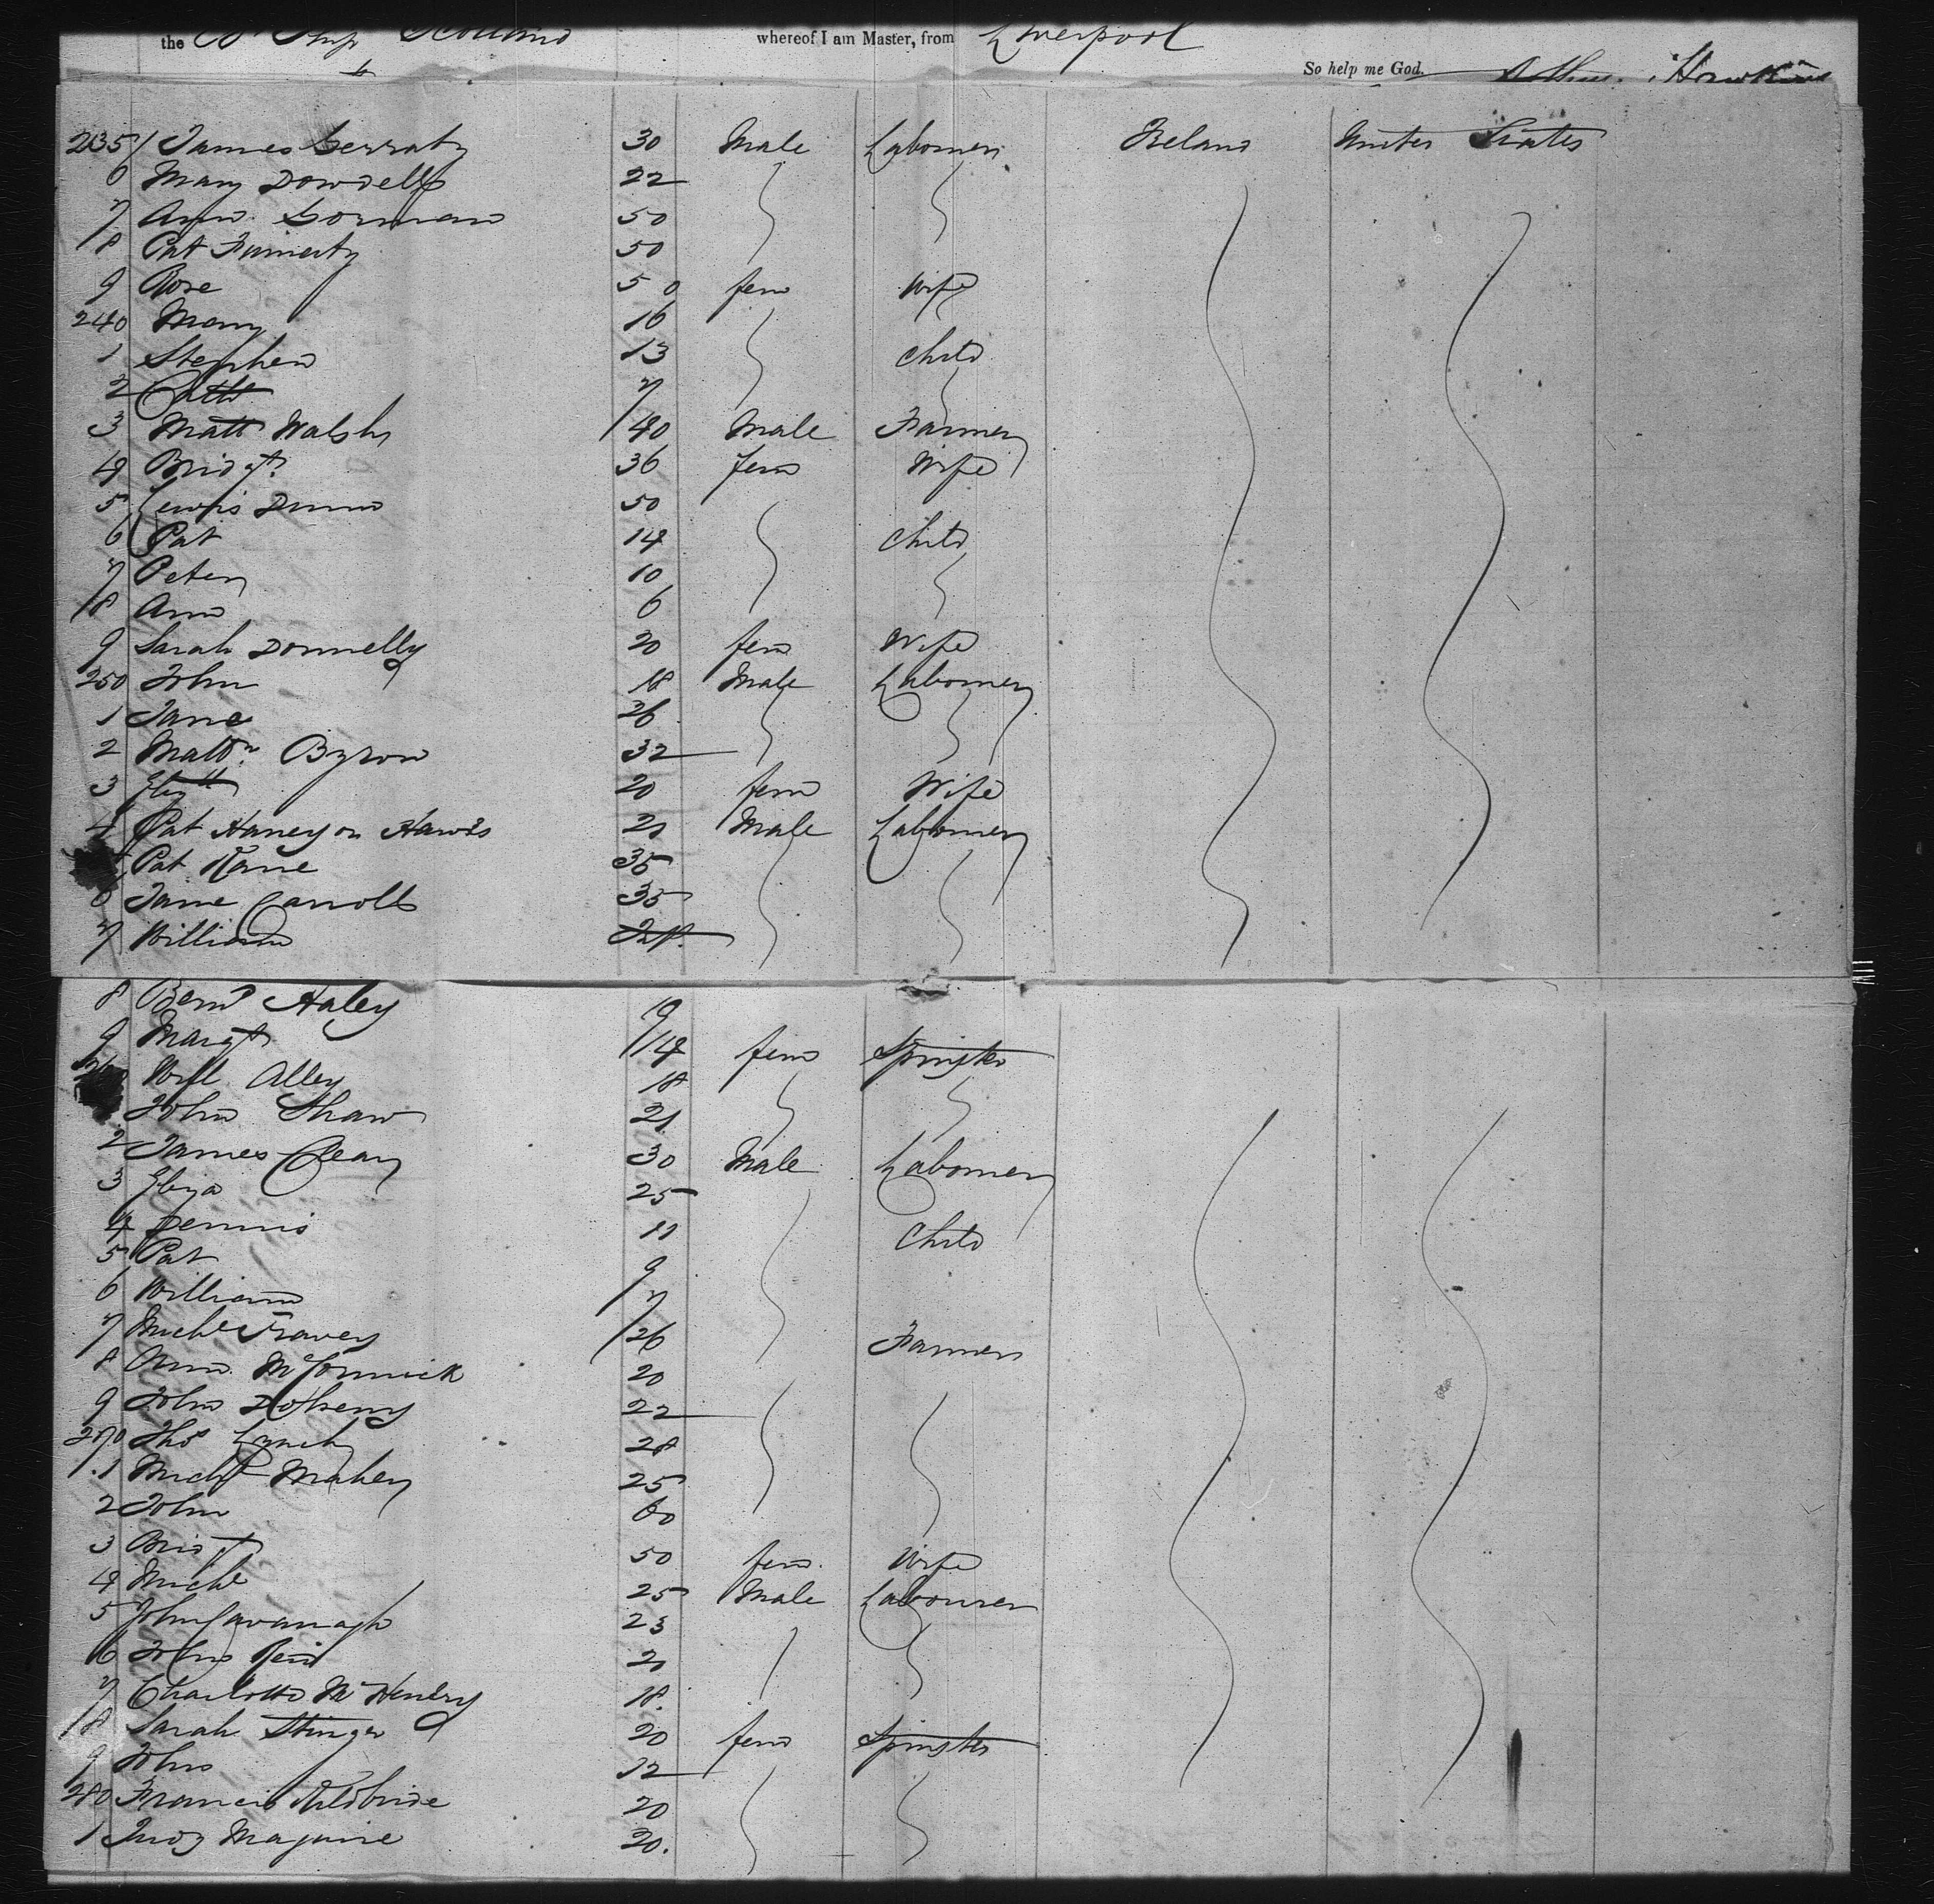 the Ship whereof I am Master, from Liverpool
So help me God. Hawkins
235 James Gerraty 30 Male Labourer Ireland United States
6 Mary Dowdell 22
7 Ann Gorman 50
8 Pat Finnerty 50
9 Rose 50 fem Wife
240 Mary 16
1 Stephen 13 Child
2 Cath 7
3 Matt Walsh 40 Male Farmer
4 Bridgt 36 fem Wife
5 Lewis Dunn 50
6 Pat 14 Child
7 Peter 10
8 Ann 6
9 Sarah Donnelly 20 fem Wife
250 John 18 Male Labourer
1 Jane 26
2 Mattw Byron 32
3 Elizth 20 fem Wife
4 Pat Haney or Harris 21 Male Labourer
Pat Kane 35
6 Jane Carroll 35
7 William Inft
8 Bernd Haley 9
9 Margt 14 fem Spinster
Will Alley 18
John Shaw 21
2 James Cleary 30 Male Labourer
3 Eliza 25
4 Dennis 11 Child
5 Pat 9
6 William 7
7 Michl Travey 26 Farmer
8 Ann McCormick 20
9 John Doheny 22
270 Thos Lynch 28
1 Michl Mahey 25
2 John 60
3 Bridgt 50 fem Wife
4 Michl 25 Male Labourer
5 John Cavanagh 23
6 John Reid 21
7 Charlotte McHenry 18
8 Sarah Stinger 20 fem Spinster
9 John 12
280 Francis Kilbride 20
1 Judy Maguire 20